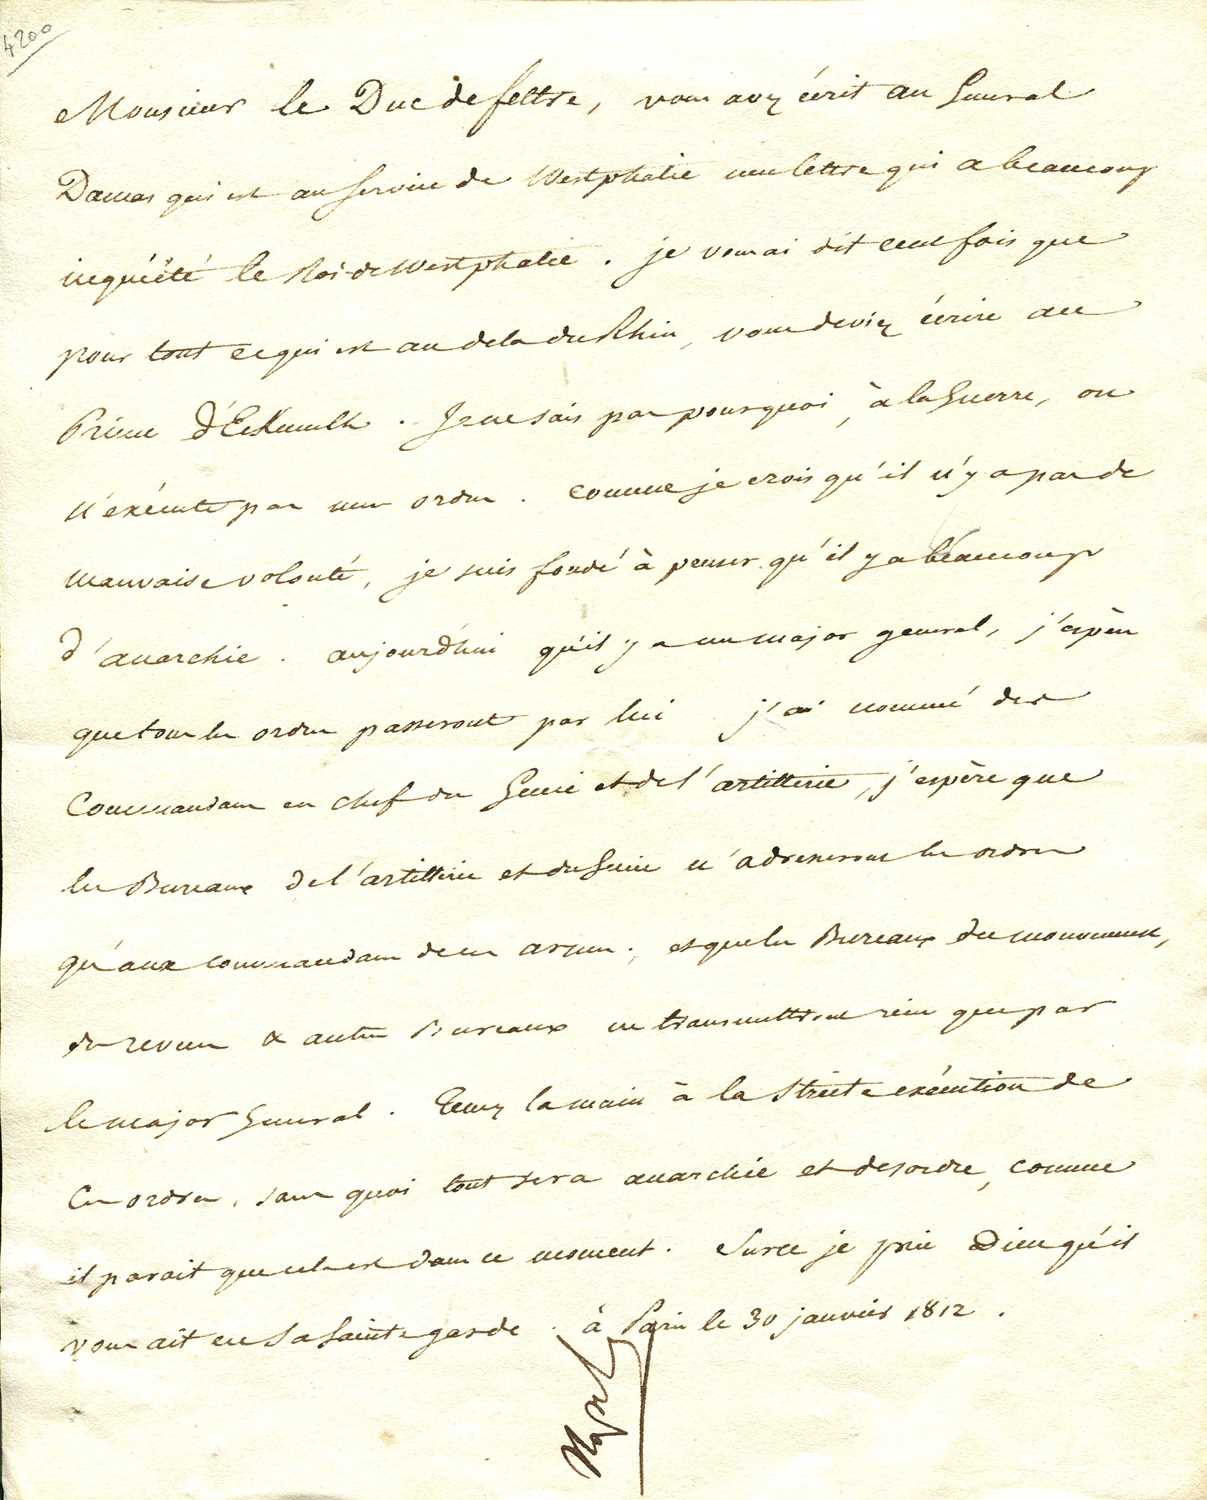 4200
Monsieur le Duc de feltre, vous avez écrit au General
Damas qui est au Service de Westphalie une lettre qui a beaucoup
inquiété le Roi de Westphalie. je vous ai dit cent fois que
pour tout ce qui est au dela du Rhin, vous deviez écrire au
Prince d'Eckmulh. Je ne sais pas pourquoi, à la Guerre, on
n'exécute pas mes ordres. comme je crois qu'il n'y a pas de
mauvaise volonté, je suis fondé à penser qu'il y a beaucoup
d'anarchie. aujourd'hui qu'il y a un major general, j'espère
que tous les ordres passeront par lui. j'ai nommé des
Commandans en chef du Genie et de l'artillerie, j'espère que
les Bureaux de l'artillerie et du Genie n'adresseront les ordres
qu'aux commandans de ces armes; et que les Bureaux du mouvement,
des revues & autres Bureaux ne transmettront rien que par
le major General. Tenez la main à la Stricte exécution de
Ces ordres, sans quoi tout sera anarchie et desordre, comme
il parait que cela est dans ce moment. Sur ce je prie Dieu qu'il
vous ait en Sa Sainte garde. à Paris le 30 janvier 1812.
Napol